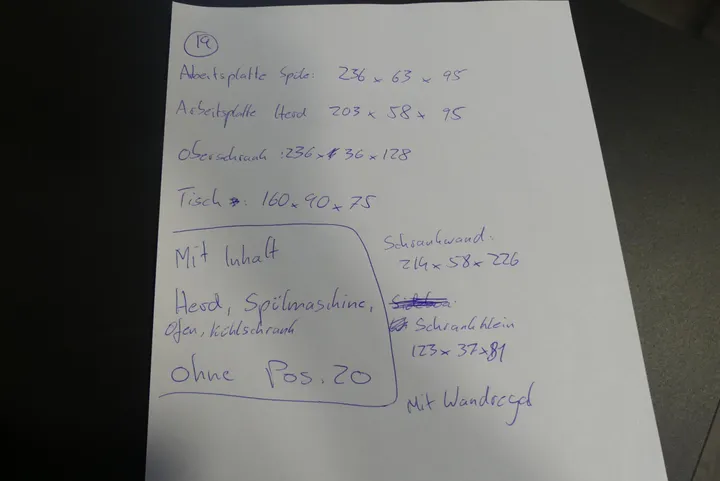 19
Arbeitsplatte Spüle: 236 x 63 x 95
Arbeitsplatte Herd 203 x 58 x 95
Oberschrank : 236 x 36 x 128
Tisch : 160 x 90 x 75
Mit Inhalt
Herd, Spülmaschine,
Ofen, Kühlschrank
Ohne Pos. 20
Schrankwand:
214 x 58 x 226
Schrank klein
123 x 37 x 81
Mit Wandregal